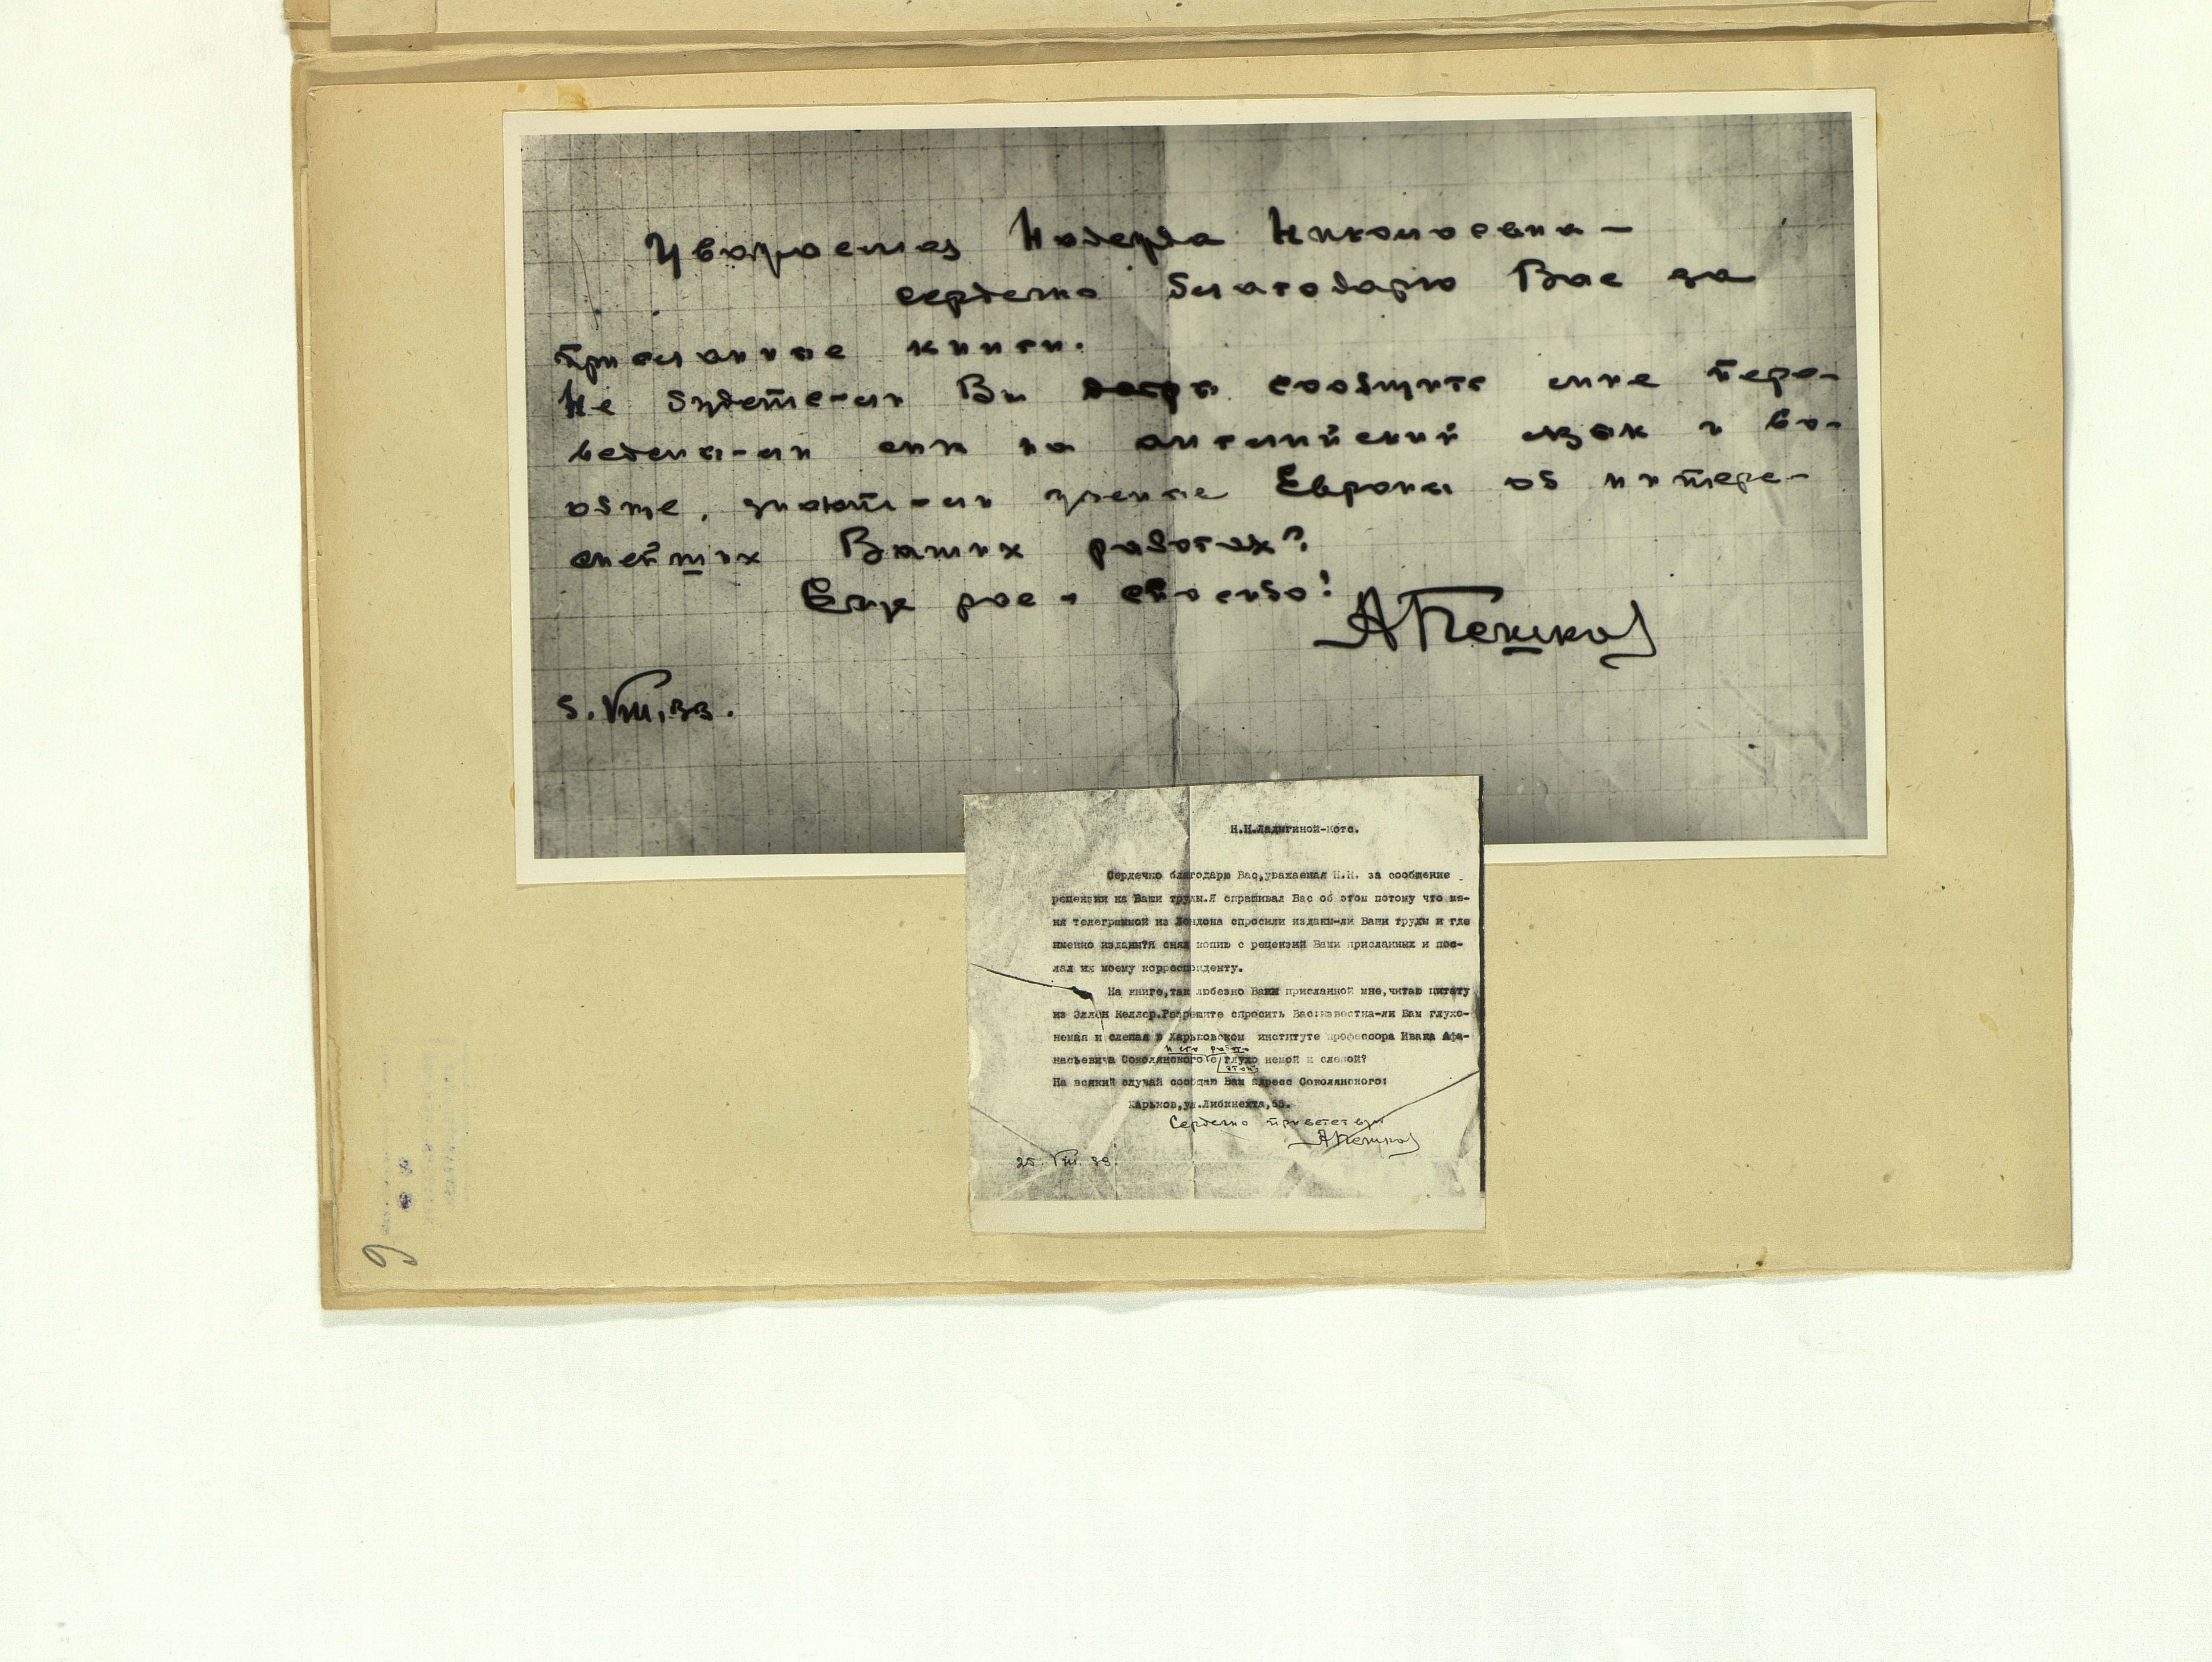 Уважаемая Надежда Николаевна –
сердечно благодарю Вас за
присланные книги.
Не будете-ли Вы сообщить мне пере-
ведены-ли они на английский язык и во-
обще, знают-ли ученые Европы об интере-
снейших Ваших работах?
Еще раз – спасибо!
АПешков
5.VIII.33.
Н.Н.Ладыгиной-Котс.
Сердечно благодарю Вас,уважаемая Н.Н. за сообщение
рецензии на Ваши труды.Я спрашивал Вас об этом потому что ме-
ня телеграммой из Лондона спросили изданы-ли Ваши труды и где
именно изданы?Я снял копию с рецензий Вами присланных и пос-
лал их моему корреспонденту.
На книге,так любезно Вами присланной мне,читаю цитату
из Эллен Келлер.Разрешите спросить Вас:известна-ли Вам глухо-
немая и слепая в Харьковском институте профессора Ивана Афа-
и его работа
насьевича Соколянского с глухо немой и слепой?
этой
На всякий случай сообщаю Вам адрес Соколянского:
Харьков,ул.Либкнехта,55.
Сердечно приветствую
АПешков
25.VIII.33.
6